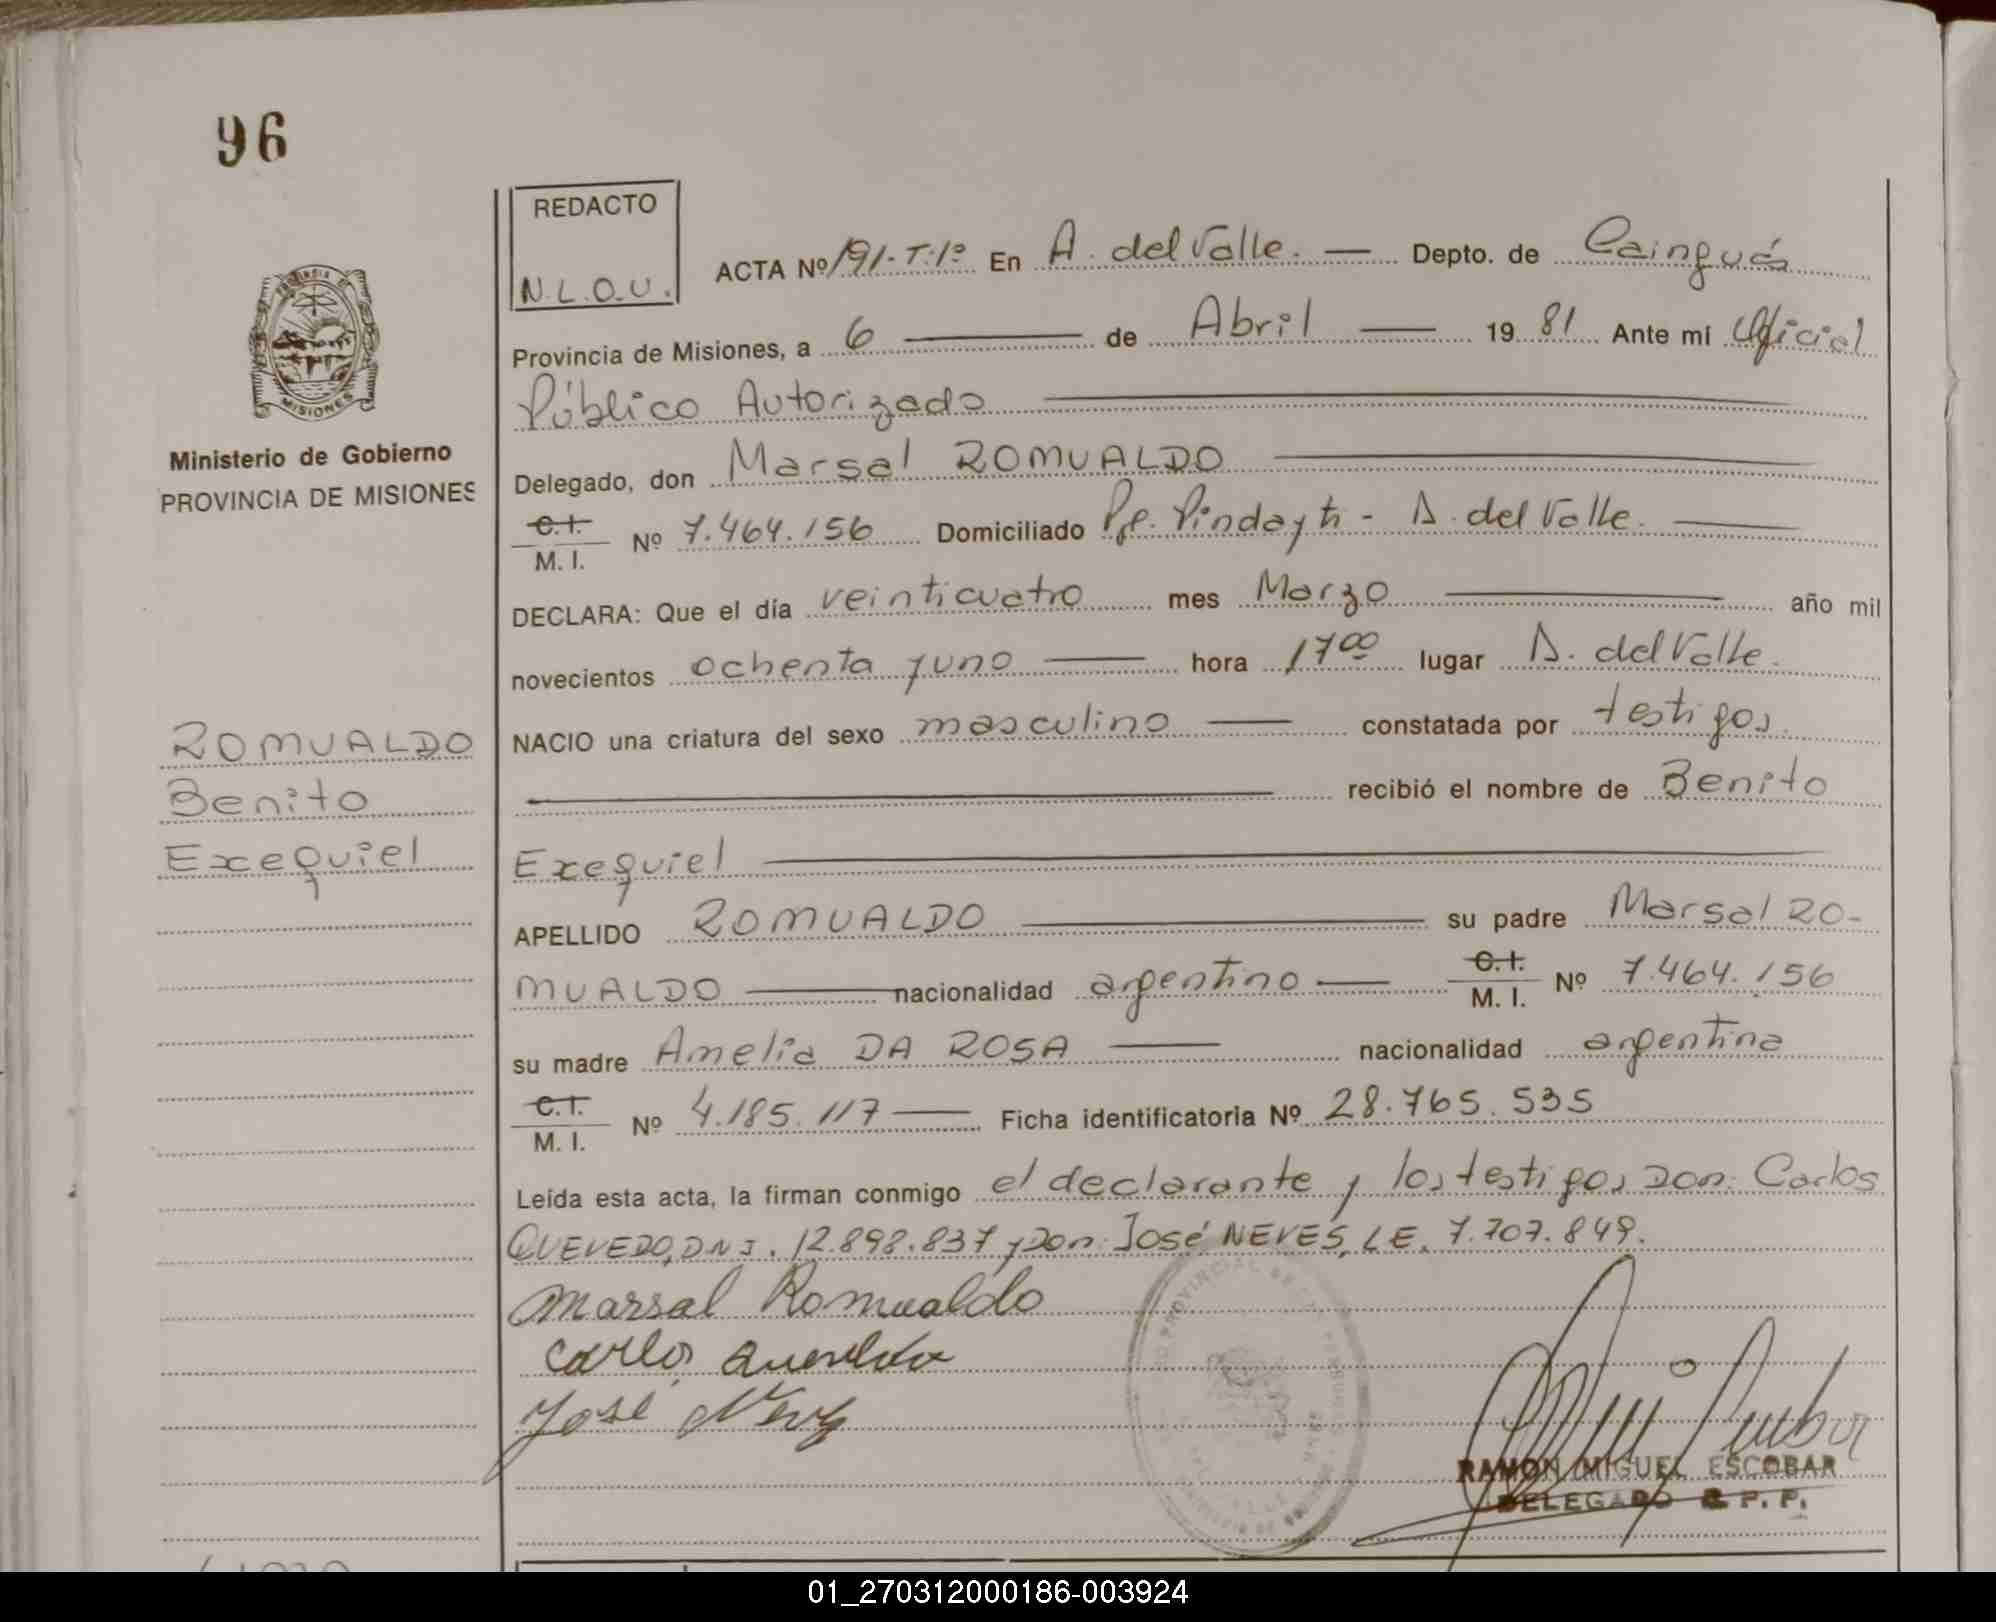 96
REDACTO
N.L.O.U.
ACTA Nº 191-T:1º En A. del Valle. Depto. de Cainguás
Provincia de Misiones, a 6 de Abril 1981 Ante mí Oficial
Público Autorizado
Ministerio de Gobierno
PROVINCIA DE MISIONES
Delegado, don Marsal ROMUALDO
C.I. M. I. Nº 7.464.156 Domiciliado Pje. Pindayti - A. del Valle.
DECLARA: Que el día veinticuatro mes Marzo año mil
novecientos ochenta y uno hora 17 00 lugar A. del Valle.
ROMUALDO
Benito
Exequiel
NACIO una criatura del sexo masculino constatada por testigos.
recibió el nombre de Benito
Exequiel
APELLIDO ROMUALDO su padre Marsal RO-
MUALDO nacionalidad argentino C.I. M. I. Nº 7.464.156
su madre Amelia DA ROSA nacionalidad argentina
C.I. M. I. Nº 4.185.117 Ficha identificatoria Nº 28.765.535
Leída esta acta, la firman conmigo el declarante y los testigos Don: Carlos
QUEVEDO, DNI. 12.898.837 y Don: José NEVES, LE. 7.707.849.
Marsal Romualdo
Carlos Quevedo
José Neves
RAMON MIGUEL ESCOBAR
DELEGADO R. P. P.
01_270312000186-003924